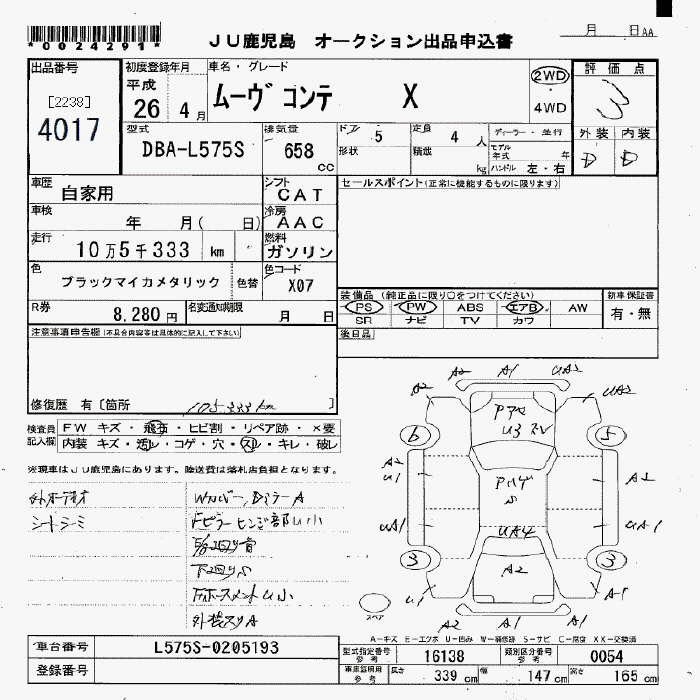 *0024291*
JU鹿児島 オークション出品申込書
月 日 AA
出品番号
[2238]
4017
初度登録年月
平成
26 4 月
車名・グレード
ムーヴ コンテ X
2WD
4WD
評価点
3
外装 内装
D D
型式
DBA-L575S
排気量
658 cc
ドア 5
形状
定員 4 人
積載 kg
ディーラー・並行
モデル年式 年
ハンドル 左・右
車歴
自家用
シフト
CAT
セールスポイント(正常に機能するものに限ります)
車検
年 月( 日)
冷房
AAC
走行
10万5千333 km
燃料
ガソリン
色
ブラックマイカメタリック
色替
色コード
X07
装備品(純正品に限り○をつけてください)
PS PW ABS エアB AW
SR ナビ TV カワ
新車保証書
有・無
R券
8,280 円
名変通知期限
月 日
後日品
注意事項申告欄(不具合内容等は具体的に記入して下さい)
修復歴 有〔箇所 105,333km 〕
検査員記入欄
FW キズ・飛石・ヒビ割・リペア跡・×要
内装 キズ・汚レ・コゲ・穴・スレ・キレ・破レ
※現車はJU鹿児島にあります。陸送費は落札店負担となります。
外オーディオ
シートシミ
Wカバー,Dミラー A
ドピラーヒンジ部U小
下回りS
外装スリA
A2 A1 UA2
A2 UA2
PアX
U3
6 5
A2 A2
U1
PハイS
UA1 UA1
UA4
3 3
A2
U1 A1
A2 A1
スペア
A-キズ E-エクボ U-凹み W-補修跡 S-サビ C-腐食 XX-交換済
車台番号
L575S-0205193
登録番号
型式指定番号 参考
16138
類別区分番号 参考
0054
車庫証明用 参考
長さ 339 cm 幅 147 cm 高さ 165 cm